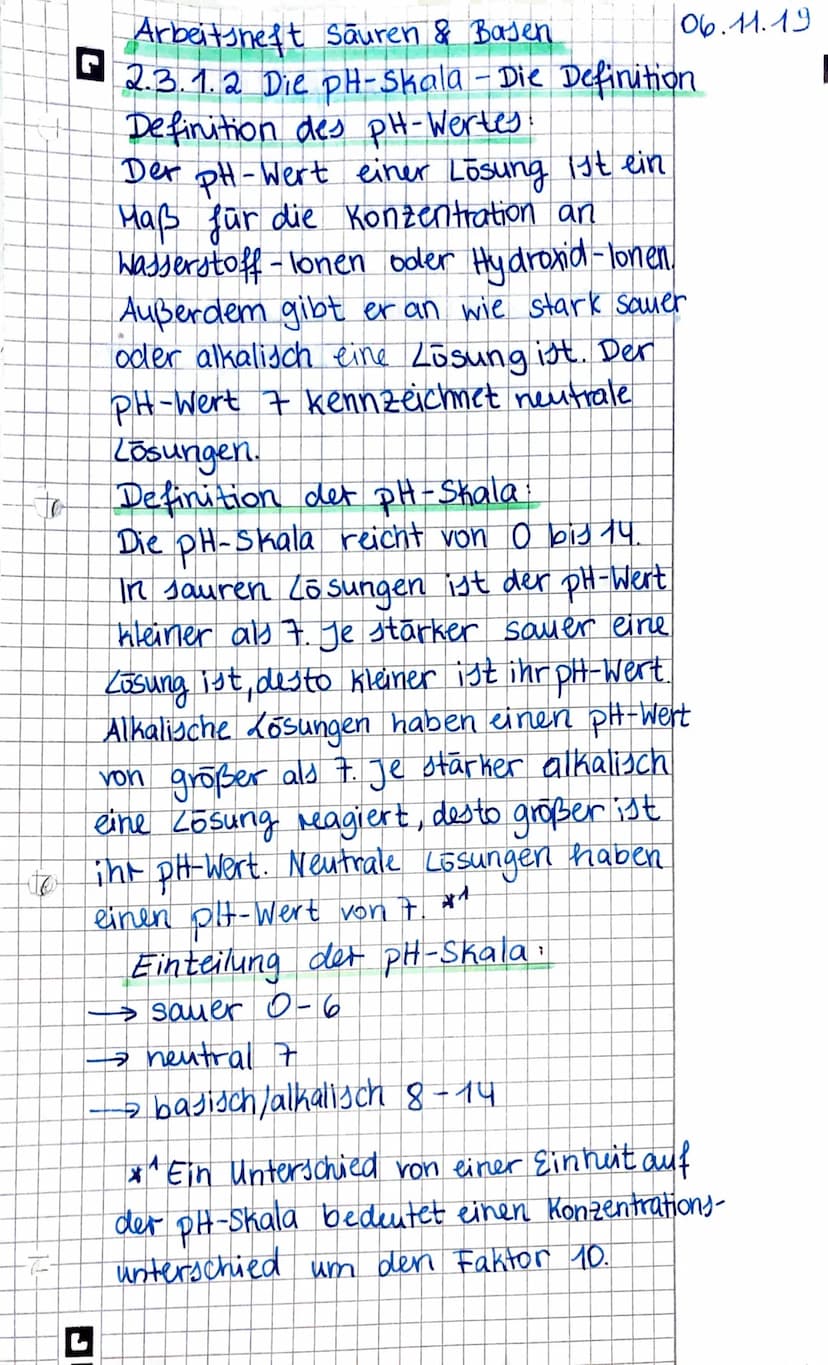 06.11.19
Arbeitsheft Säuren & Basen
2.3.1.2 Die pH-Skala - Die Definition
Definition des pH-Wertes:
Der pH-Wert einer Lösung ist ein
Maß für die Konzentration an
Wasserstoff-Ionen oder Hydroxid-Ionen.
Außerdem gibt er an wie stark sauer
oder alkalisch eine Lösung ist. Der
pH-Wert 7 kennzeichnet neutrale
Lösungen.
Definition der pH-Skala:
Die pH-Skala reicht von 0 bis 14.
In sauren Lösungen ist der pH-Wert
kleiner als 7. Je stärker sauer eine
Lösung ist, desto kleiner ist ihr pH-Wert.
Alkalische Lösungen haben einen pH-Wert
von größer als 7. Je stärker alkalisch
eine Lösung reagiert, desto größer ist
ihr pH-Wert. Neutrale Lösungen haben
einen pH-Wert von 7. *1
Einteilung der pH-Skala:
→ sauer 0-6
→ neutral 7
→ basisch/alkalisch 8-14
*1 Ein Unterschied von einer Einheit auf
der pH-Skala bedeutet einen Konzentrations-
unterschied um den Faktor 10.